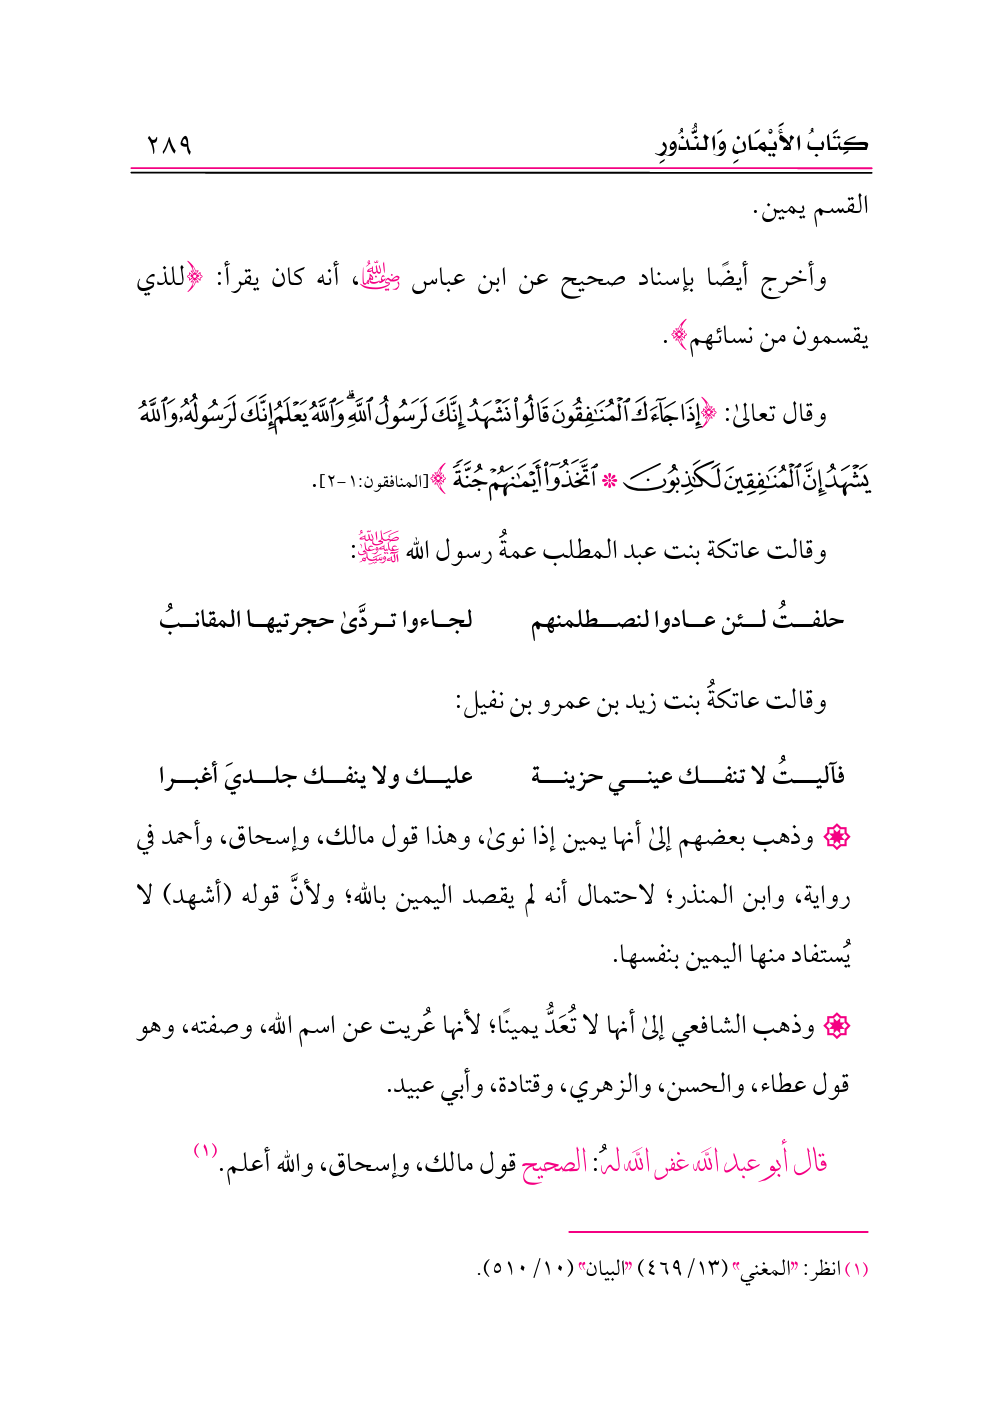 كِتَابُ الأَيْمَانِ وَالنُّذُورِ ٢٨٩
القسم يمين.
وأخرج أيضًا بإسناد صحيح عن ابن عباس رضي الله عنهما، أنه كان يقرأ: ﴿للذي
يقسمون من نسائهم﴾.
وقال تعالىٰ: ﴿إِذَا جَآءَكَ ٱلْمُنَٰفِقُونَ قَالُوا۟ نَشْهَدُ إِنَّكَ لَرَسُولُ ٱللَّهِ ۗ وَٱللَّهُ يَعْلَمُ إِنَّكَ لَرَسُولُهُۥ وَٱللَّهُ
يَشْهَدُ إِنَّ ٱلْمُنَٰفِقِينَ لَكَٰذِبُونَ * ٱتَّخَذُوٓا۟ أَيْمَٰنَهُمْ جُنَّةً ﴾[المنافقون:١-٢].
وقالت عاتكة بنت عبد المطلب عمةُ رسول الله صلى الله عليه وعلى آله وسلم:
حلفــتُ لــئن عــادوا لنصــطلمنهم لجــاءوا تــردَّىٰ حجرتيهــا المقانــبُ
وقالت عاتكةُ بنت زيد بن عمرو بن نفيل:
فآليــتُ لا تنفــك عينــي حزينــة عليــك ولا ينفــك جلــديَ أغبــرا
وذهب بعضهم إلىٰ أنها يمين إذا نوىٰ، وهذا قول مالك، وإسحاق، وأحمد في
رواية، وابن المنذر؛ لاحتمال أنه لم يقصد اليمين بالله؛ ولأنَّ قوله (أشهد) لا
يُستفاد منها اليمين بنفسها.
وذهب الشافعي إلىٰ أنها لا تُعَدُّ يمينًا؛ لأنها عُريت عن اسم الله، وصفته، وهو
قول عطاء، والحسن، والزهري، وقتادة، وأبي عبيد.
قال أبو عبد الله غفر الله لهُ: الصحيح قول مالك، وإسحاق، والله أعلم.(١)
(١) انظر: "المغني" (١٣/ ٤٦٩) "البيان" (١٠/ ٥١٠).